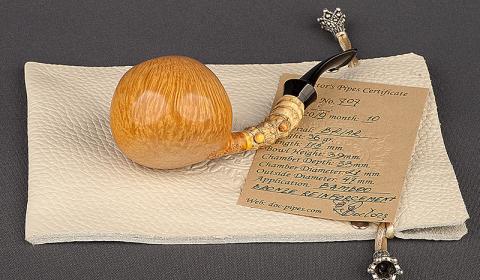 tor's Pipes Certificate
No. 707
month: 10
BRIAR
36 gr.
mm.
Bowl Height: 39 mm.
Chamber Depth: 33 mm.
Chamber Diameter: 21 mm.
Outside Diameter: 47 mm.
Application: BAMBOO
BRONZE REINFORCEMENT
Web: doc-pipes.com